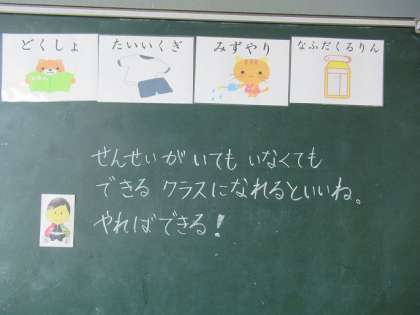 どくしょ
たいいくぎ
みずやり
なふだくるりん
せんせいがいても いなくても
できる クラスになれるといいね。
やればできる!